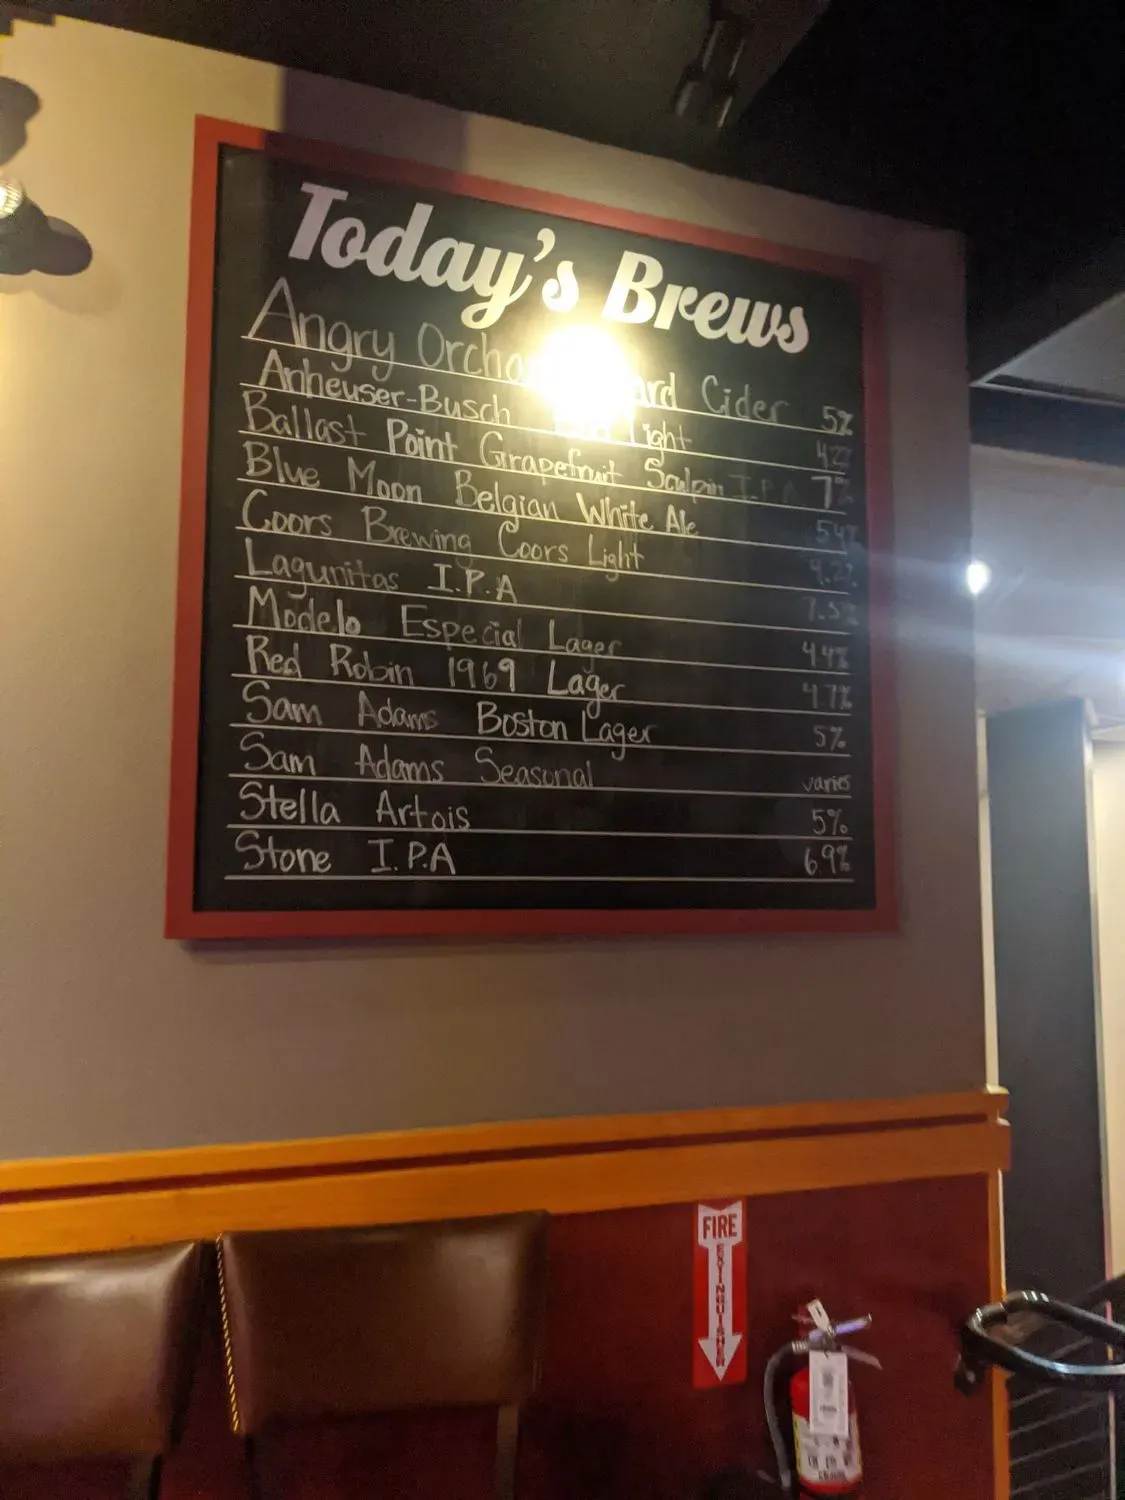 Today's Brews
Angry Orcha ard Cider 5%
Anheuser-Busch Light 4.2%
Ballast Point Grapefruit Sculpin I.P.A 7%
Blue Moon Belgian White Ale 5.4%
Coors Brewing Coors Light 4.2%
Lagunitas I.P.A 7.5%
Modelo Especial Lager 4.4%
Red Robin 1969 Lager 4.7%
Sam Adams Boston Lager 5%
Sam Adams Seasonal varies
Stella Artois 5%
Stone I.P.A 6.9%
FIRE
EXTINGUISHER